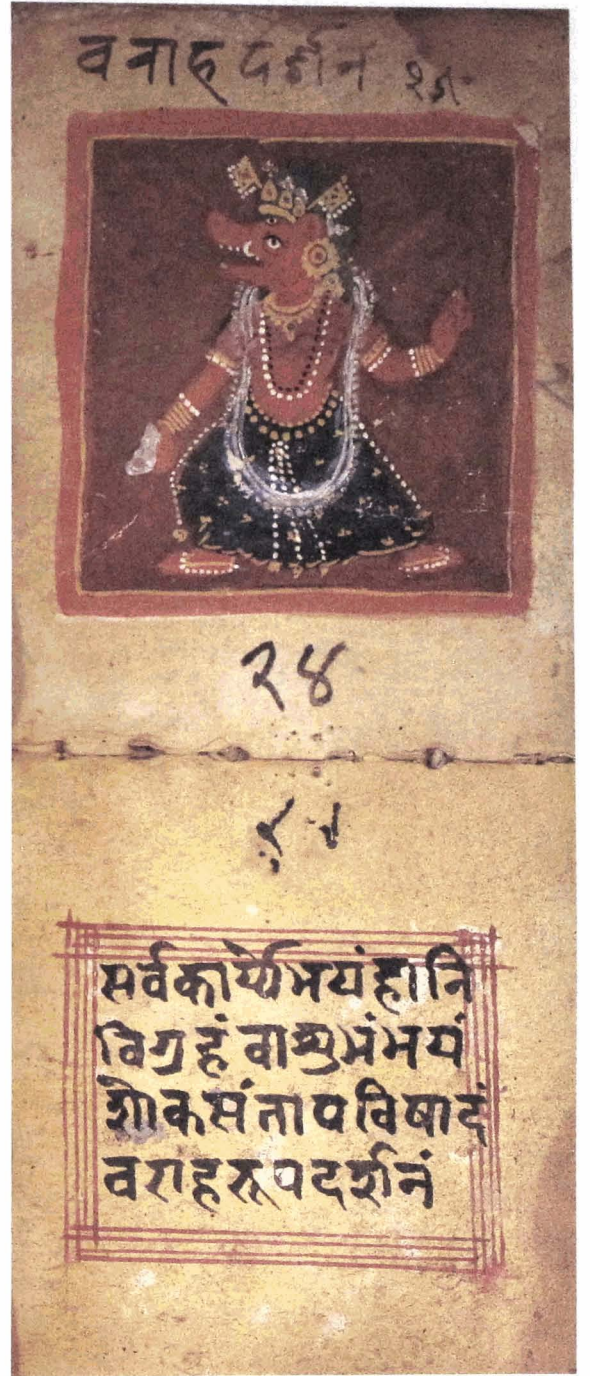 वनाह दर्शन २५
२४
सर्वकार्य्येभयंहानि
विग्रहं वाशुभंभयं
शोकसंतापविषादं
वराहरूपदर्शनं